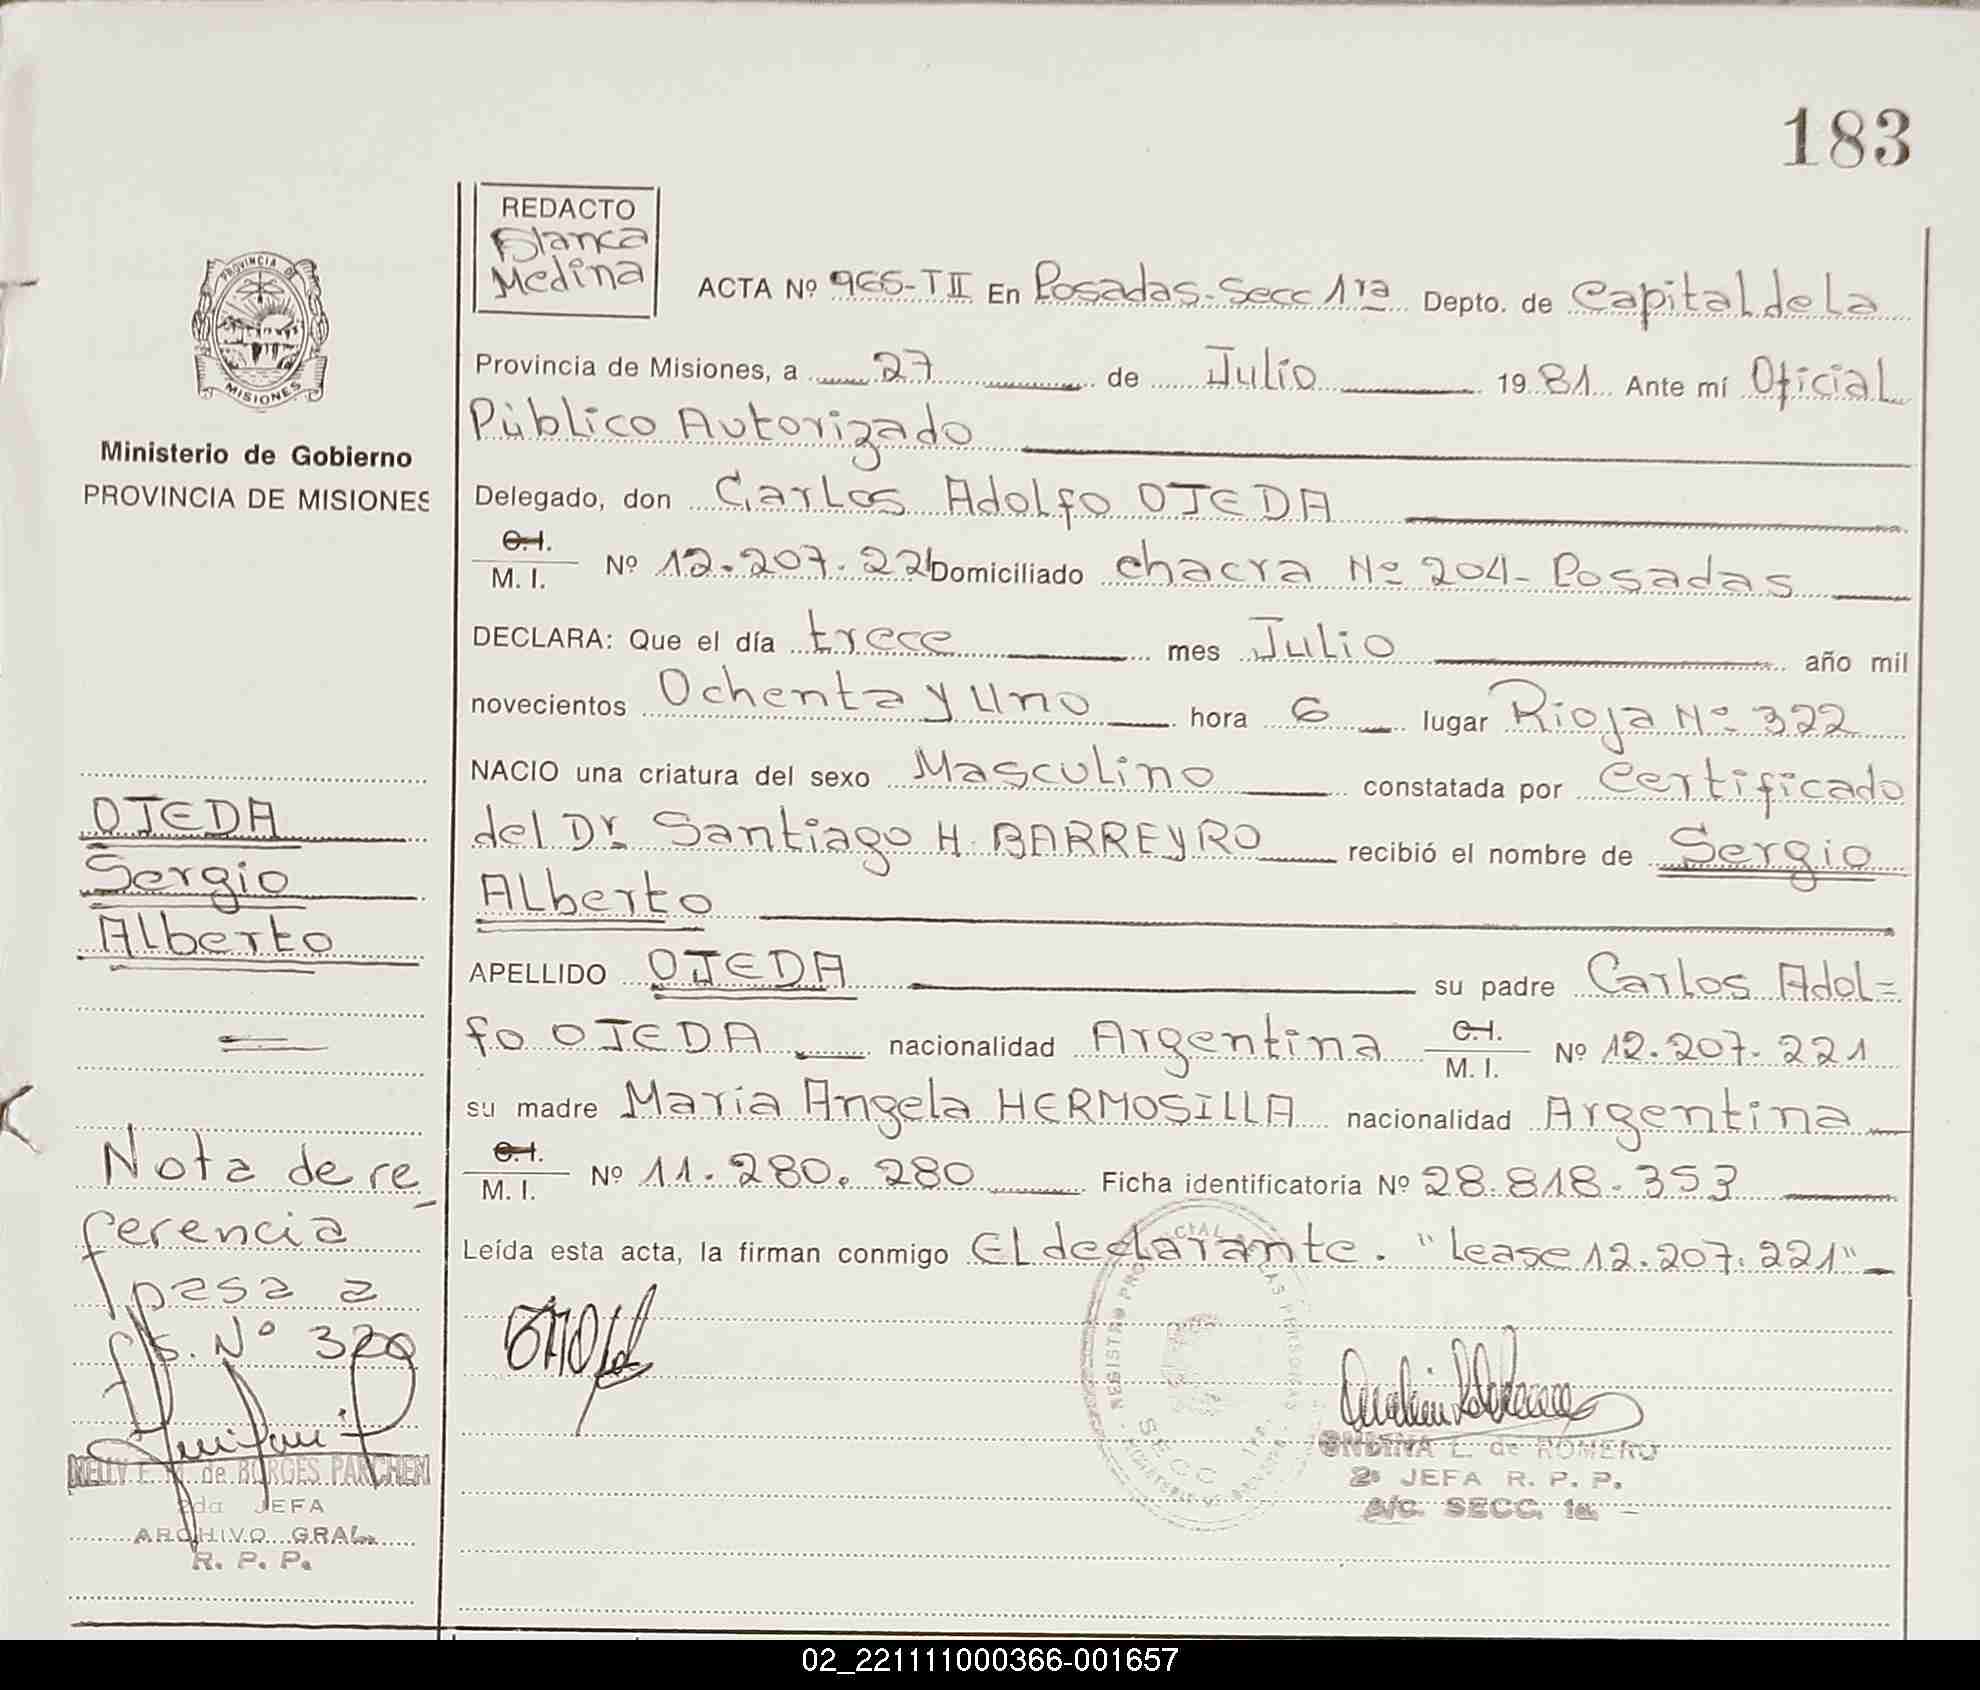 183
REDACTO
Blanca
Medina
ACTA Nº 965-TII En Posadas-Secc 1ra Depto. de Capital de La
Provincia de Misiones, a 27 de Julio 1981 Ante mí Oficial
Público Autorizado
Delegado, don Carlos Adolfo OJEDA
C.I.
M. I. Nº 12.207.221 Domiciliado chacra Nº 204- Posadas
DECLARA: Que el día trece mes Julio año mil
novecientos Ochenta y Uno hora 6 lugar Rioja Nº 322
NACIO una criatura del sexo Masculino constatada por Certificado
del Dr. Santiago H. BARREYRO recibió el nombre de Sergio
Alberto
APELLIDO OJEDA su padre Carlos Adol=
fo OJEDA nacionalidad Argentina C.I. M. I. Nº 12.207.221
su madre Maria Angela HERMOSILLA nacionalidad Argentina
C.I.
M. I. Nº 11.280.280 Ficha identificatoria Nº 28.818.353
Leída esta acta, la firman conmigo El declarante. "Lease 12.207.221"
PROVINCIA DE
MISIONES
Ministerio de Gobierno
PROVINCIA DE MISIONES
OJEDA
Sergio
Alberto
Nota de re_
ferencia
pasa a
fs. Nº 320
NELLY E. de BORGES PARCHEM
2da JEFA
ARCHIVO GRAL.
R. P. P.
SECC 1ra.
ONDINA L. de ROMERO
2ª JEFA R. P. P.
A/C. SECC. 1a.
02_221111000366-001657